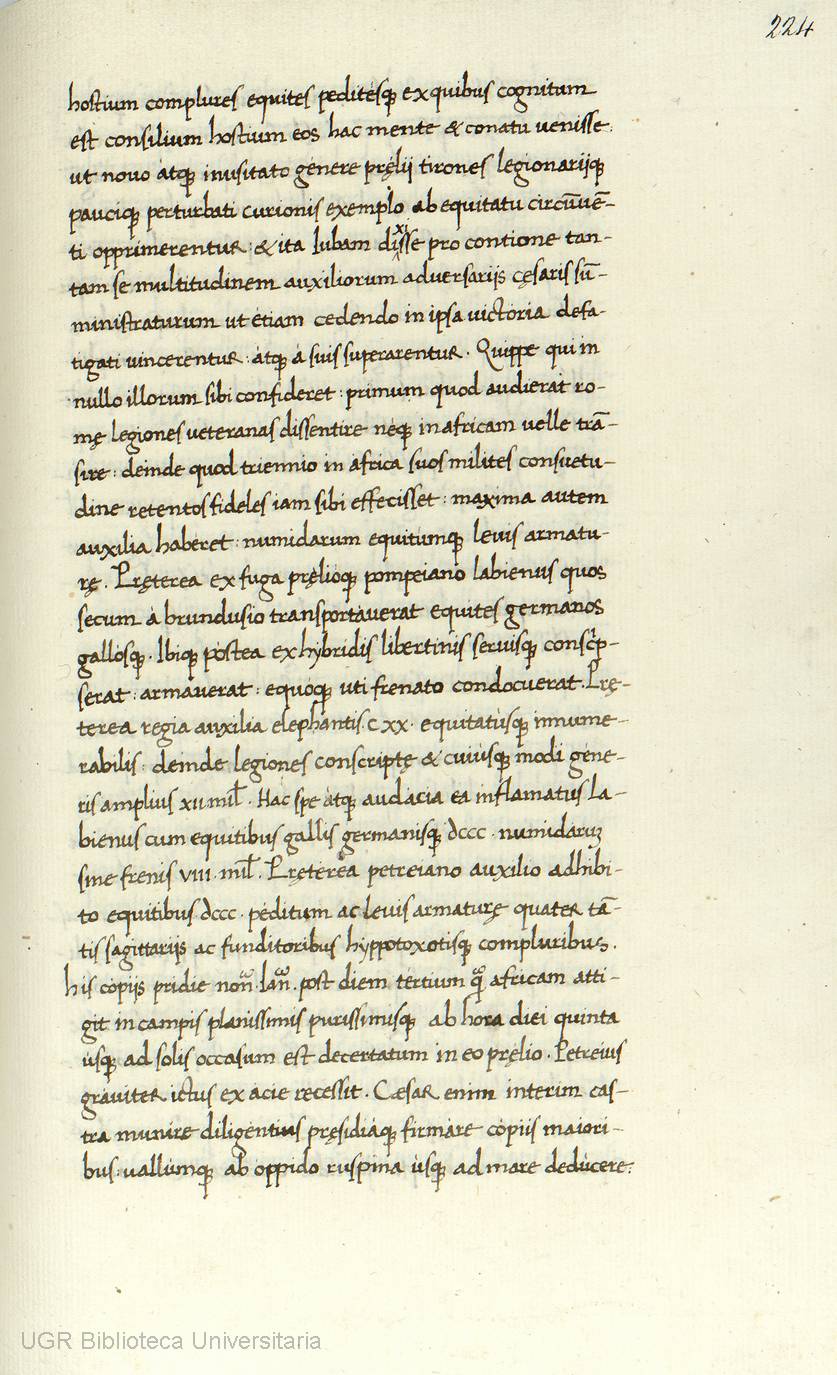 224
hostium complures equites peditesq; ex quibus cognitum
est consilium hostium eos hac mente & conatu uenisse:
ut nouo atq; inusitato genere pręlij tirones legionarijq;
pauciq; perturbati curionis exemplo ab equitatu circūuē-
ti opprimerentur: & ita Iubam dixisse pro contione tan-
tam se multitudinem auxiliorum aduersarijs cęsaris sū-
ministraturum ut etiam cedendo in ipsa uictoria defa-
tigati uincerentur: atq; à suis superarentur. Quippe qui in
nullo illorum sibi confideret: primum quod audierat ro-
mę legiones ueteranas dissentire neq; in africam uelle trā-
sire: deinde quod triennio in africa suos milites consuetu-
dine retentos fideles iam sibi effecisset: maxima autem
auxilia haberet: numidarum equitumq; leuis armatu-
rę. Pręterea ex fuga pręlioq; pompeiano labienus quos
secum à brundusio transportauerat equites germanos
gallosq;. Ibiq; postea ex hybridis libertinis seruisq; conscrip-
serat: armauerat: equoq; uti frenato condocuerat. Prę-
terea regia auxilia elephantis. cxx. equitatusq; innume-
rabilis: deinde legiones conscriptę & cuiusq; modi gene-
ris amplius xii mil̄. Hac spe atq; audacia ea inflamatus La-
bienus cum equitibus gallis germanisq; dccc. numidarum
sine frenis viii. mil̄. Pręterea petreiano auxilio adhibi-
to equitibus dccc. peditum ac leuis armaturę quater tā-
tis sagittarijs ac funditoribus hyppotoxotisq; compluribus.
his copijs pridie non̄. Ian̄. post diem tertium q̄ africam atti-
git in campis planissimis purissimisq; ab hora diei quinta
usq; ad solis occasum est decertatum in eo pręlio. Petreius
grauiter ictus ex acie recessit. Cæsar enim interim cas-
tra munire diligentius pręsidiaq; firmare copiis maiori-
bus: uallumq; ab oppido ruspina usq; ad mare deducere:
UGR Biblioteca Universitaria